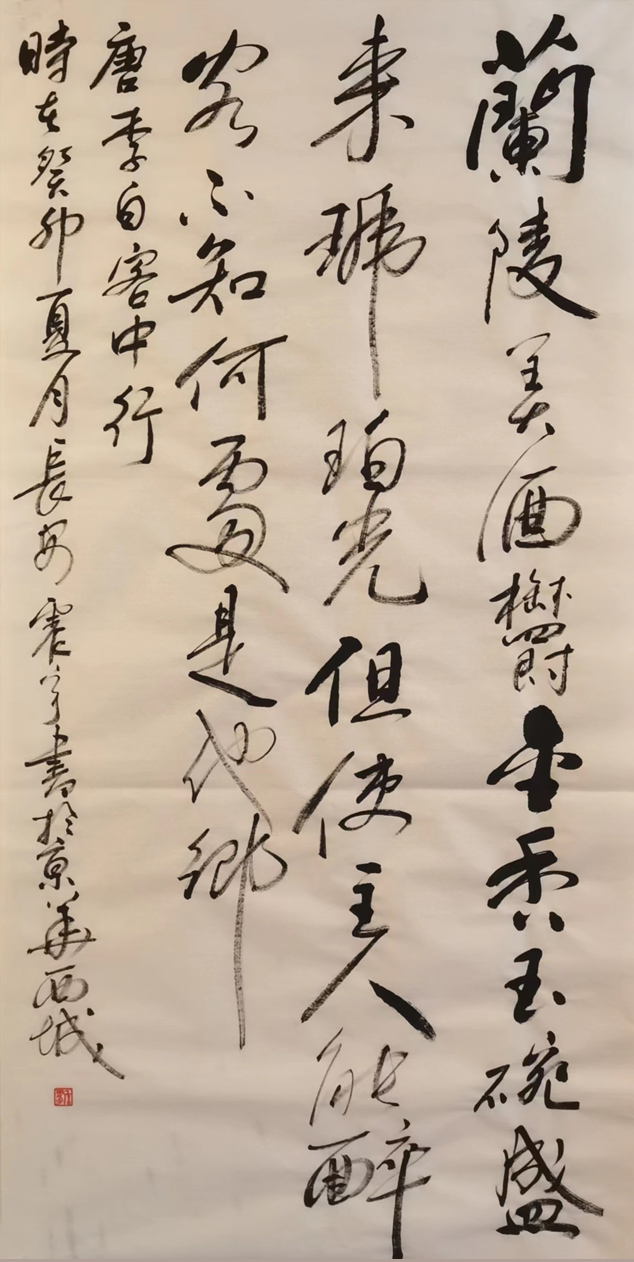 蘭陵美酒欝金香玉碗盛
来琥珀光但使主人能醉
客不知何處是他鄉
唐李白客中行
時在癸卯夏月長安震宇書於京華西城